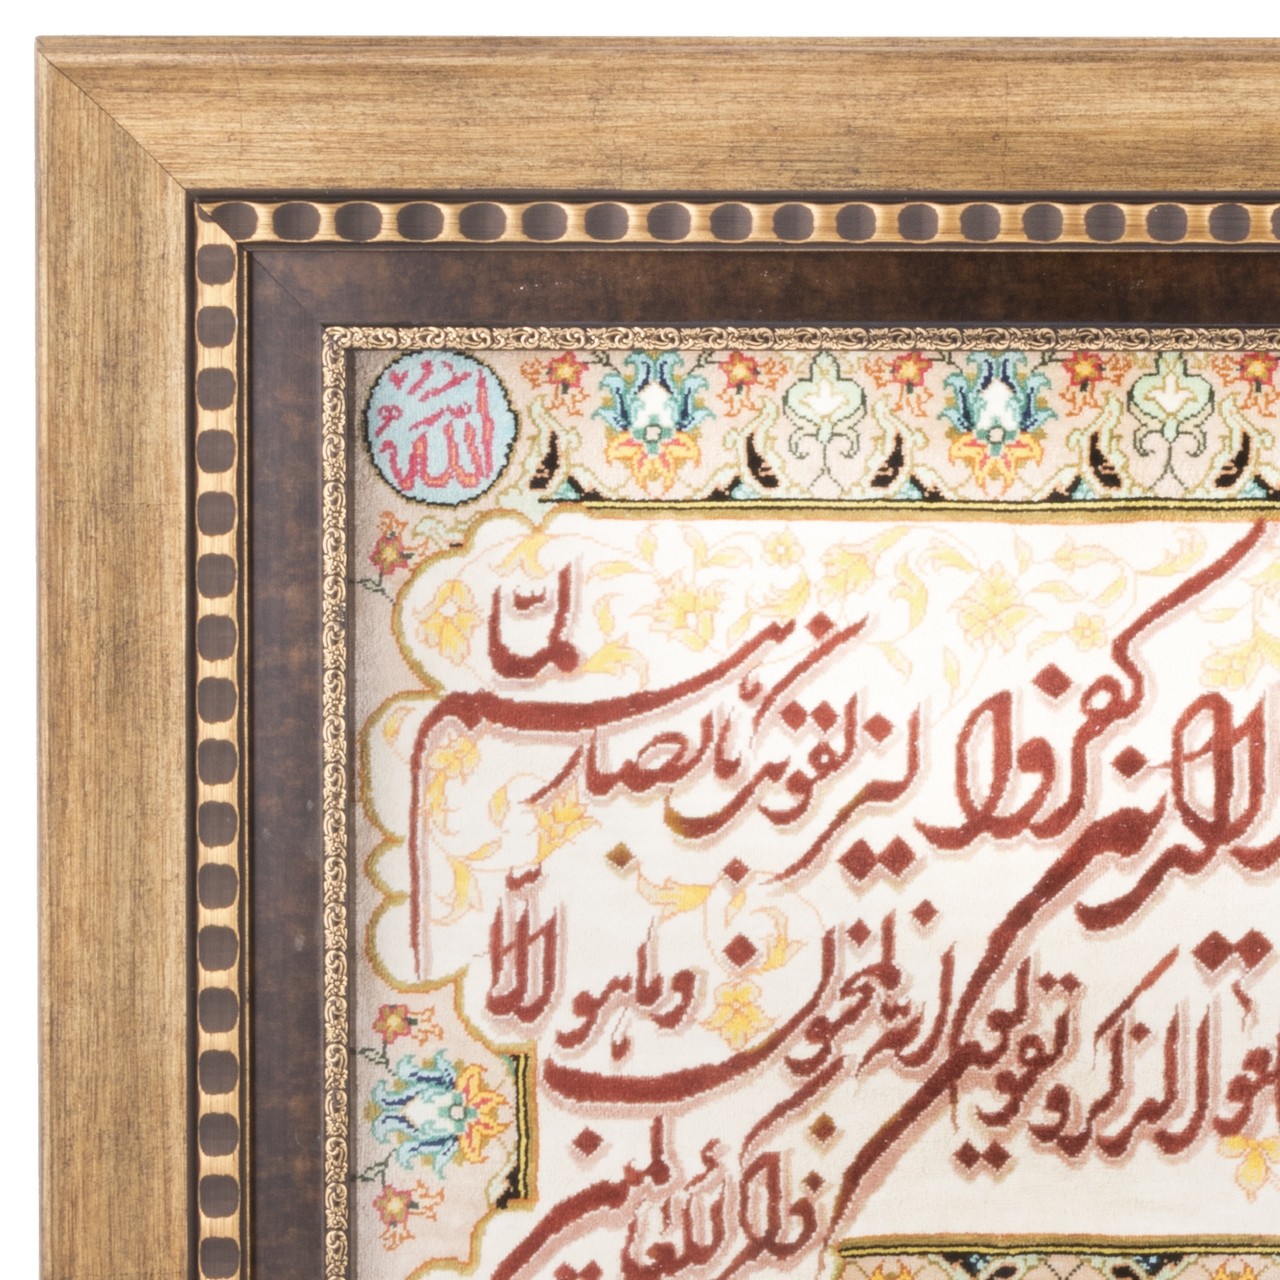 الله
کفروا لیزلقونک بابصارهم لما
سمعوا الذکر و یقولون انه لمجنون و ما هو الا
ذکر للعالمین